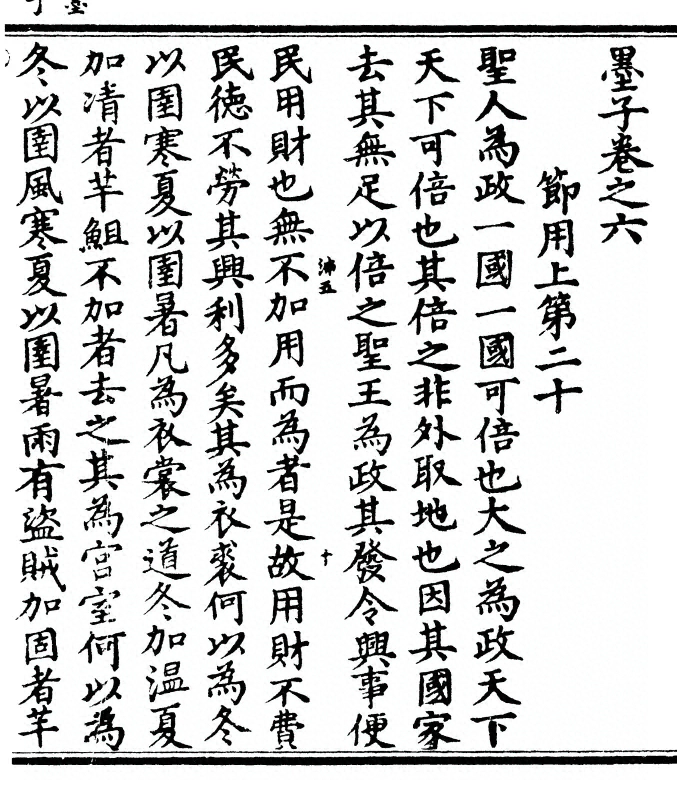 墨子卷之六
節用上第二十
聖人為政一國一國可倍也大之為政天下
天下可倍也其倍之非外取地也因其國家
去其無足以倍之聖王為政其發令興事便
民用財也無不加用而為者是故用財不費
民德不勞其興利多矣其為衣裘何以為冬
以圉寒夏以圉暑凡為衣裳之道冬加温夏
加凊者芊䱉不加者去之其為宮室何以為
冬以圉風寒夏以圉暑雨有盜賊加固者芊